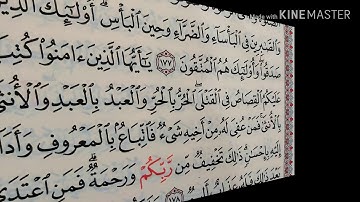 Made with KINEMASTER
وَالصَّٰبِرِينَ فِي الْبَأْسَآءِ وَالضَّرَّآءِ وَحِينَ الْبَأْسِ أُو۟لَٰٓئِكَ الَّذِينَ
صَدَقُوا۟ وَأُو۟لَٰٓئِكَ هُمُ الْمُتَّقُونَ ١٧٧ يَٰٓأَيُّهَا الَّذِينَ ءَامَنُوا۟ كُتِبَ
عَلَيْكُمُ الْقِصَاصُ فِي الْقَتْلَى الْحُرُّ بِالْحُرِّ وَالْعَبْدُ بِالْعَبْدِ وَالْأُنثَىٰ
بِالْأُنثَىٰ فَمَنْ عُفِيَ لَهُ مِنْ أَخِيهِ شَيْءٌ فَاتِّبَاعٌ بِالْمَعْرُوفِ وَأَدَآءٌ
إِلَيْهِ بِإِحْسَٰنٍ ذَٰلِكَ تَخْفِيفٌ مِّن رَّبِّكُمْ وَرَحْمَةٌ فَمَنِ اعْتَدَىٰ
بَعْدَ ذَٰلِكَ فَلَهُ عَذَابٌ أَلِيمٌ ١٧٨